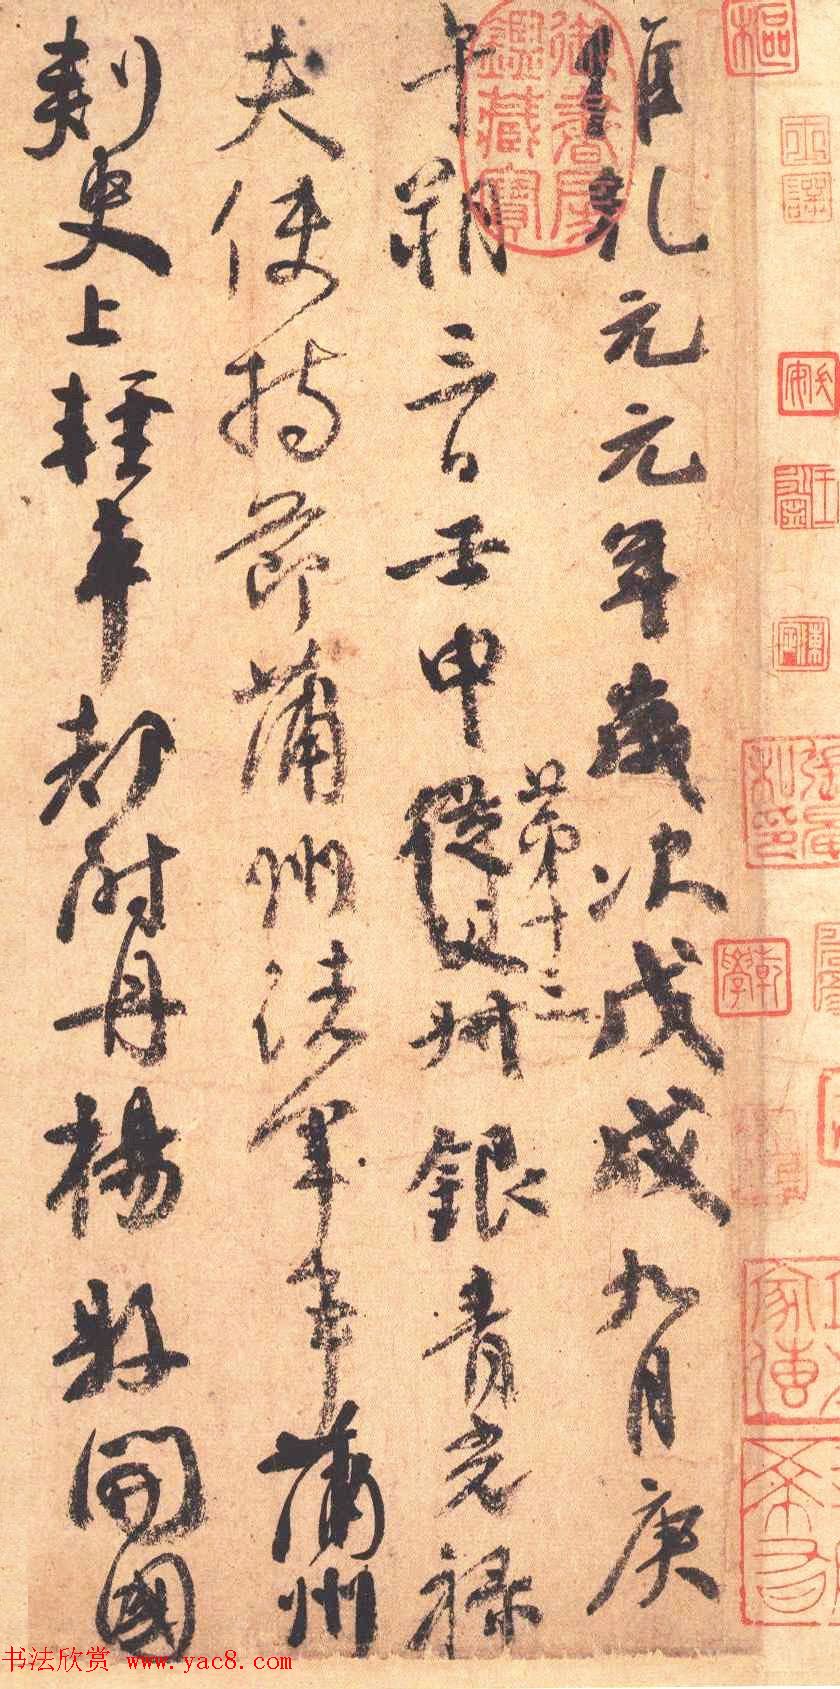 維乾元元年歲次戊戌九月庚
午朔三日壬申從父第十三叔銀青光祿
夫使持節蒲州諸軍事蒲州
刺史上輕車都尉丹楊縣開國
御書房鑑藏寶
樞
书法欣赏 www.yac8.com